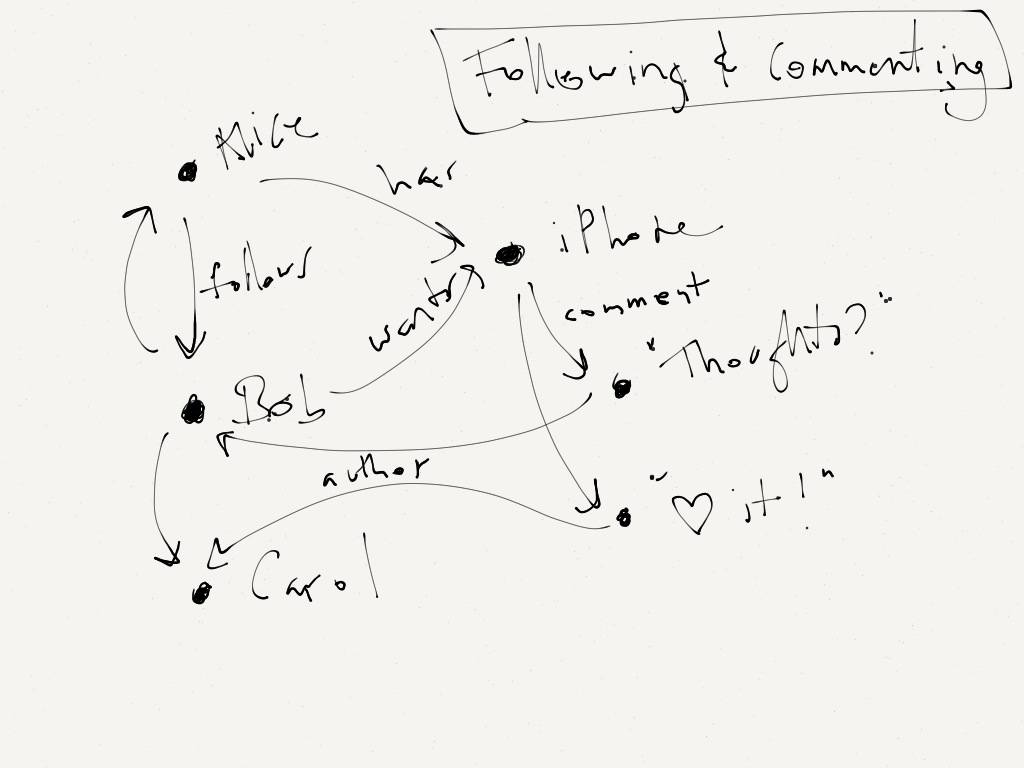 Following & Commenting
Alice
has
iPhone
follows
wants
comment
"Thoughts?"
Bob
author
"♡ it!"
Carol